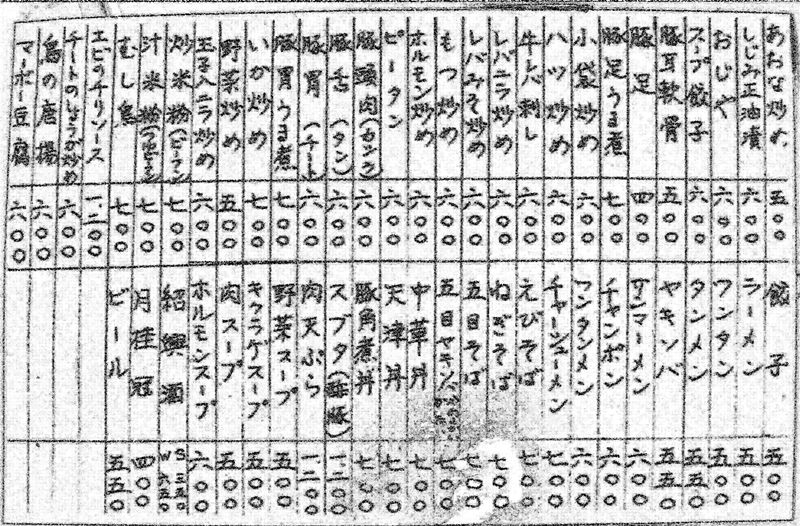 あおな炒め 五〇〇
しじみ正油漬 六〇〇
おじや 六〇〇
スープ餃子 六〇〇
豚耳軟骨 五〇〇
豚足 四〇〇
豚足うま煮 七〇〇
小袋炒め 六〇〇
ハツ炒め 六〇〇
牛レバ刺し 六〇〇
レバニラ炒め 六〇〇
レバみそ炒め 六〇〇
もつ炒め 六〇〇
ホルモン炒め 六〇〇
ピータン 六〇〇
豚頭肉 六〇〇
豚舌(タン) 六〇〇
豚胃(チート) 六〇〇
豚胃うま煮 七〇〇
いか炒め 七〇〇
野菜炒め 五〇〇
玉子入ニラ炒め 六〇〇
炒米粉(ビーフン) 七〇〇
汁米粉 七〇〇
むし鳥 七〇〇
エビのチリソース 一、二〇〇
チートのしょうが炒め 六〇〇
鳥の唐揚 六〇〇
マーボー豆腐 六〇〇
餃子 五〇〇
ラーメン 五〇〇
ワンタン 五〇〇
タンメン 五五〇
ヤキソバ 五五〇
サンマーメン 六〇〇
チャンポン 六〇〇
ワンタンメン 六〇〇
チャーシューメン 七〇〇
えびそば 七〇〇
ねぎそば 七〇〇
五目そば 七〇〇
五目ヤキソバ 七〇〇
中華丼 七〇〇
天津丼 七〇〇
豚角煮丼 七〇〇
スブタ(酢豚) 一、二〇〇
肉天ぷら 一、二〇〇
野菜スープ 五〇〇
キクラゲスープ 五〇〇
肉スープ 五〇〇
ホルモンスープ 六〇〇
紹興酒 S三五〇 W六五〇
月桂冠 四〇〇
ビール 五五〇